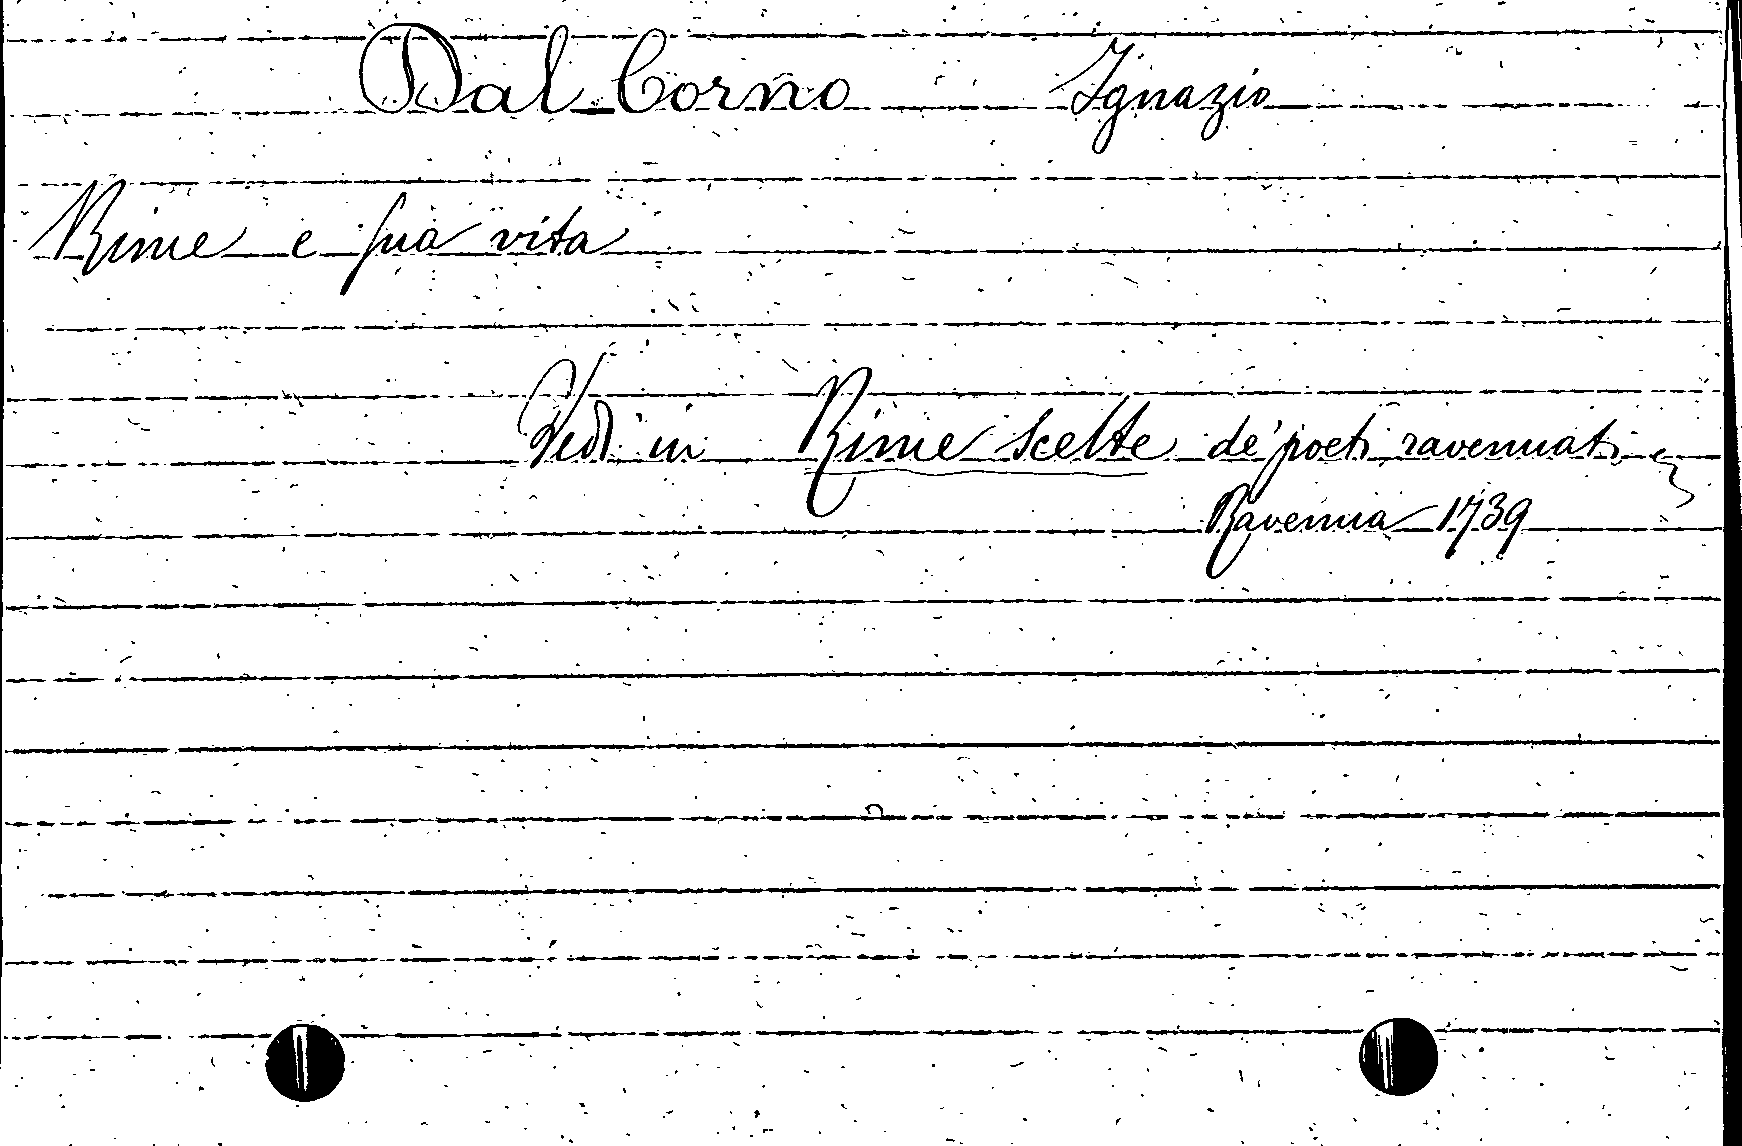 Dal Corno Ignazio
Rime e sua vita
Vedi in Rime scelte de' poeti ravennati
Ravenna 1739